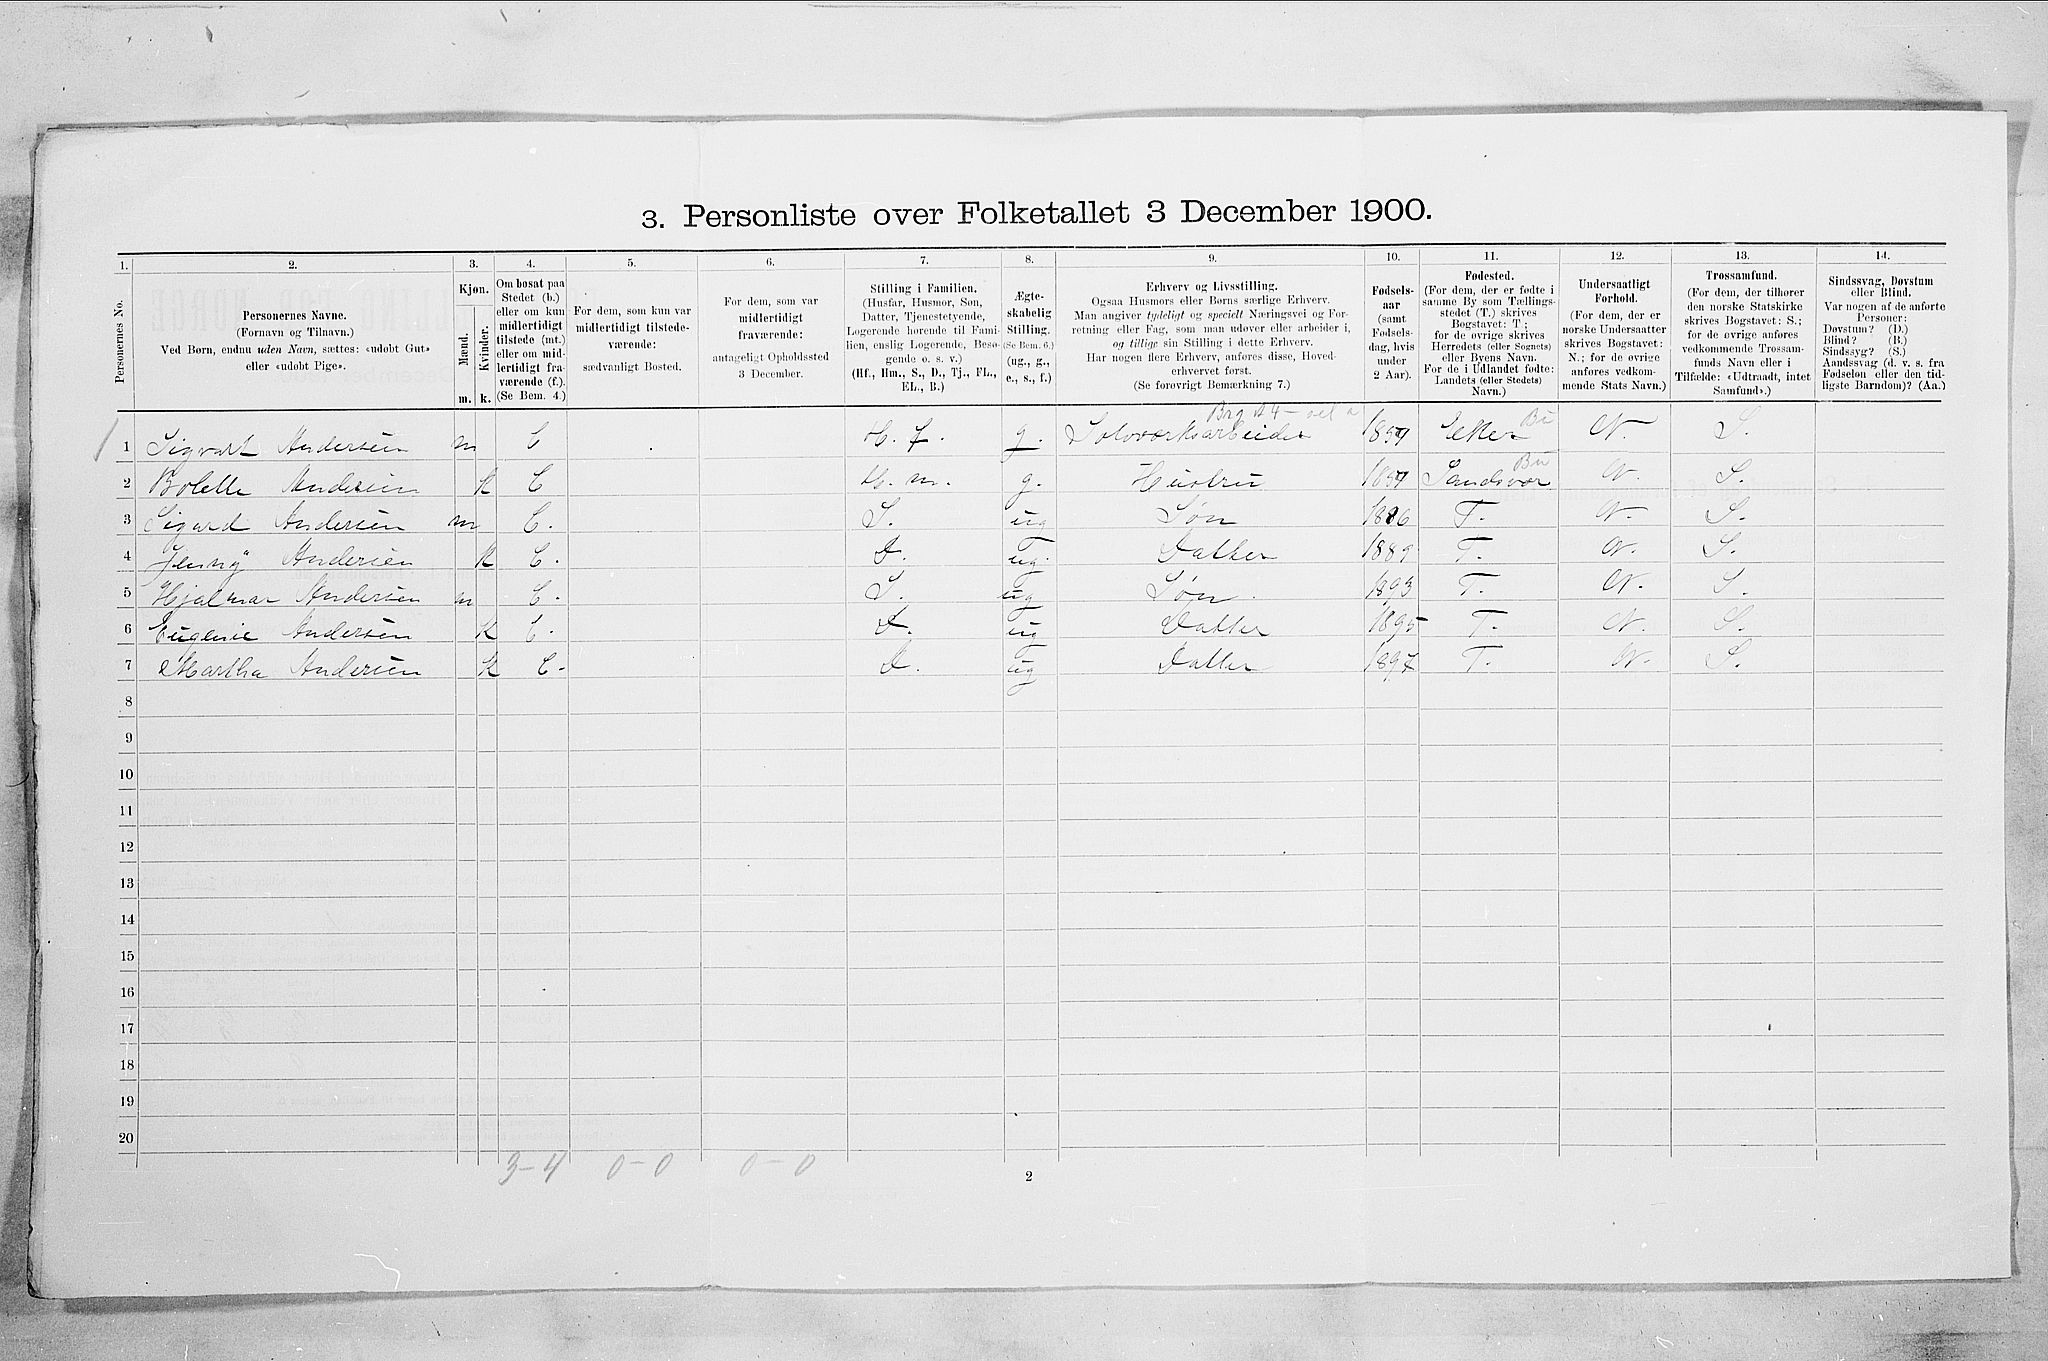 3. Personliste over Folketallet 3 December 1900.
1. 2. 3. 4. 5. 6. 7. 8. 9. 10. 11. 12. 13. 14.
Personernes No.
Personernes Navne.
(Fornavn og Tilnavn.)
Ved Børn, endnu uden Navn, sættes: «udøbt Gut»
eller «udøbt Pige».
Kjøn.
Mænd.
Kvinder.
m. k.
Om bosat paa
Stedet (b.)
eller om kun
midlertidigt
tilstede (mt.)
eller om mid-
lertidigt fra-
værende (f.).
(Se Bem. 4.)
For dem, som kun var
midlertidigt tilstede-
værende:
sædvanligt Bosted.
For dem, som var
midlertidigt
fraværende:
antageligt Opholdssted
3 December.
Stilling i Familien.
(Husfar, Husmor, Søn,
Datter, Tjenestetyende,
Logerende hørende til Fami-
lien, enslig Logerende, Besø-
gende o. s. v.)
(Hf., Hm., S., D., Tj., FL.,
EL., B.)
Ægte-
skabelig
Stilling.
(Se Bem. 6.)
(ug., g.,
e., s., f.)
Erhverv og Livsstilling.
Ogsaa Husmors eller Børns særlige Erhverv.
Man angiver tydeligt og specielt Næringsvei og For-
retning eller Fag, som man udøver eller arbeider i,
og tillige sin Stilling i dette Erhverv.
Har nogen flere Erhverv, anføres disse, Hoved-
erhvervet først.
(Se forøvrigt Bemærkning 7.)
Fødsels-
aar
(samt
Fødsels-
dag, hvis
under
2 Aar).
Fødested.
(For dem, der er fødte i
samme By som Tællings-
stedet (T.) skrives
Bogstavet: T;
for de øvrige skrives
Herredets (eller Sognets)
eller Byens Navn.
For de i Udlandet fødte:
Landets (eller Stedets)
Navn.)
Undersaatligt
Forhold.
(For dem, der er
norske Undersaatter
skrives Bogstavet:
N.; for de øvrige
anføres vedkom-
mende Stats Navn.)
Trossamfund.
(For dem, der tilhører
den norske Statskirke
skrives Bogstavet: S.;
for de øvrige anføres
vedkommende Trossam-
funds Navn eller i
Tilfælde: «Udtraadt, intet
Samfund».)
Sindssvag, Døvstum
eller Blind.
Var nogen af de anførte
Personer:
Døvstum? (D.)
Blind? (B.)
Sindssyg? (S.)
Aandssvag (d. v. s. fra
Fødselen eller den tid-
ligste Barndom)? (Aa.)
1 Sigvalt Andersen m b H. f. g. Sølvværksarbeider Eker Bu N. S.
2 Bolette Andersen k b H. m. g. Hustru Sandsvær Bu N. S.
3 Sigurd Andersen m b. S. ug Søn 1886 T. N. S.
4 Jenny Andersen k b. D. ug. Datter 1889 T. N. S.
5 Hjalmar Andersen m b. S. ug Søn. 1893 T. N. S.
6 Eugenie Andersen k b. D. ug Datter 1895 T. N. S.
7 Martha Andersen k b. D. ug Datter 1897 T. N. S.
8
9
10
11
12
13
14
15
16
17
18
19
20
3-4 0-0 0-0
2